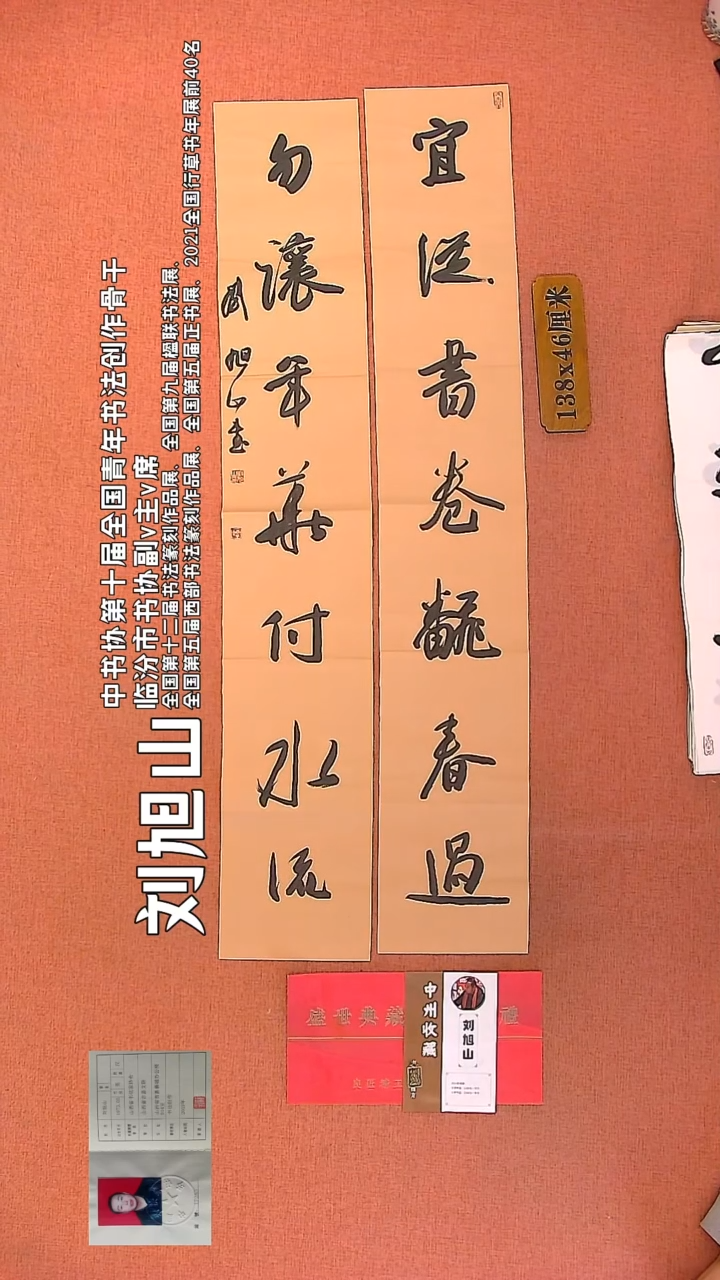 宜從昔卷飜春過
勿讓年華付水流
劉旭山書
中书协第十届全国青年书法创作骨干
临汾市书协副v主v席
全国第十二届书法篆刻作品展、全国第九届楹联书法展、
全国第五届西部书法篆刻作品展、全国第五届正书展、2021全国行草书年展前40名
刘旭山
138x46厘米
中州收藏
刘旭山